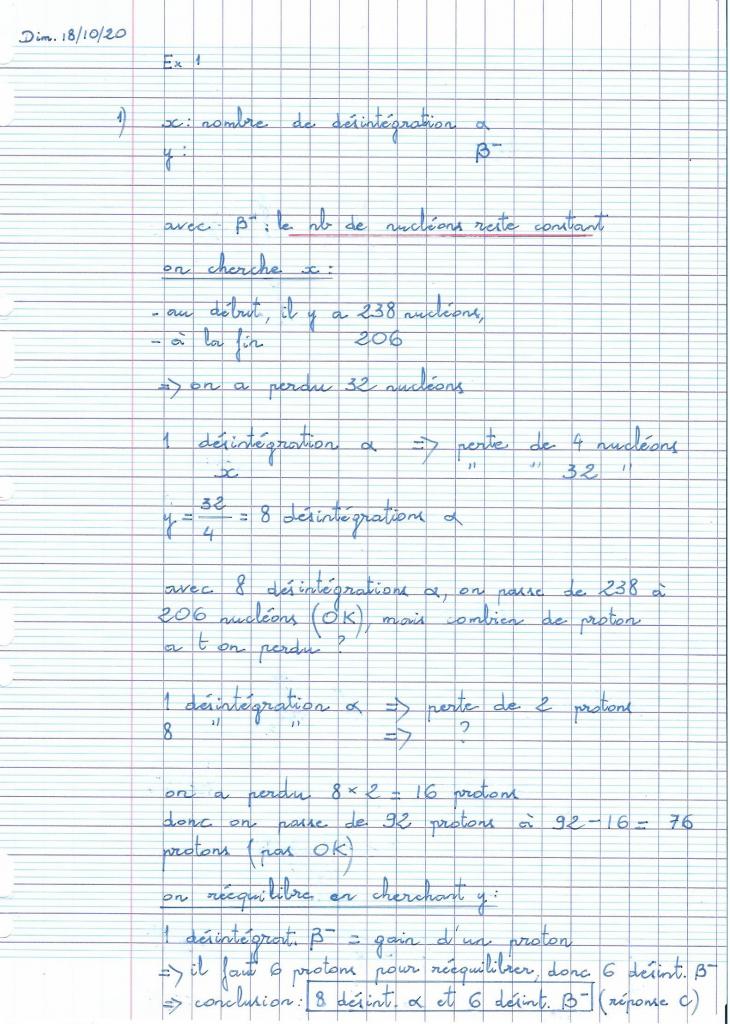 Dim. 18/10/20
Ex 1
1) x : nombre de désintégration α
y : β⁻
avec β⁻ : le nb de nucléons reste constant
on cherche x :
- au début, il y a 238 nucléons,
- à la fin 206
=> on a perdu 32 nucléons
1 désintégration α => perte de 4 nucléons
x " " 32 "
y = 32/4 = 8 désintégrations α
avec 8 désintégrations α, on passe de 238 à
206 nucléons (OK), mais combien de proton
a t on perdu ?
1 désintégration α => perte de 2 protons
8 " " => ?
on a perdu 8 × 2 = 16 protons
donc on passe de 92 protons à 92 - 16 = 76
protons (pas OK)
on rééquilibre en cherchant y :
1 désintégrat. β⁻ = gain d'un proton
=> il faut 6 protons pour rééquilibrer, donc 6 désint. β⁻
=> conclusion : 8 désint. α et 6 désint. β⁻ (réponse C)